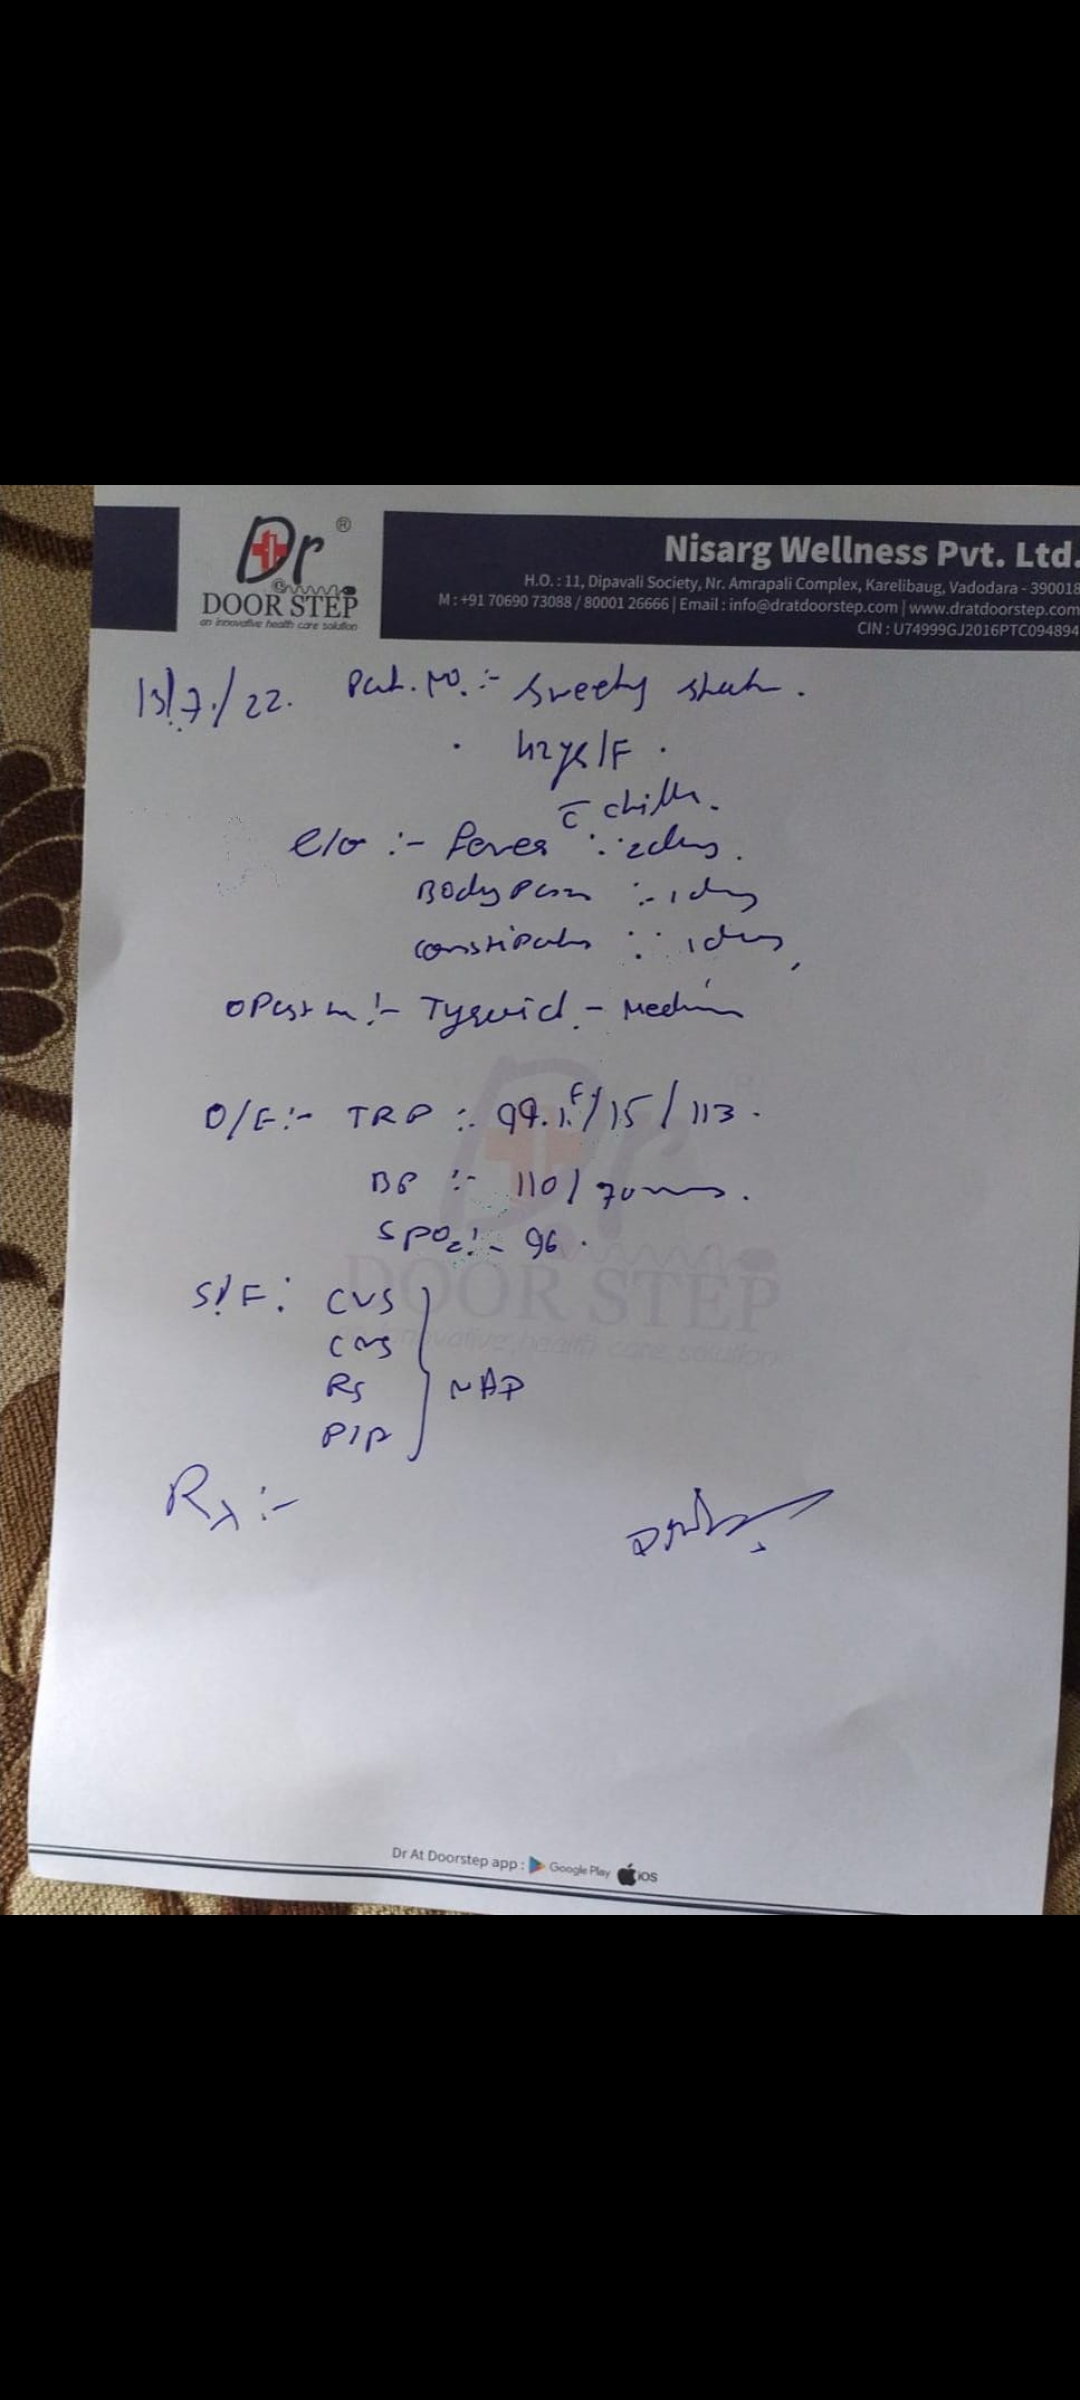 Dr ®
@
DOOR STEP
an innovative health care solution
Nisarg Wellness Pvt. Ltd.
H.O. : 11, Dipavali Society, Nr. Amrapali Complex, Karelibaug, Vadodara - 390018
M : +91 70690 73088 / 80001 26666 | Email : info@dratdoorstep.com | www.dratdoorstep.com
CIN : U74999GJ2016PTC094894
13/7/22. Pat. No. :- Sweety Shah.
42 yrs/F.
c̄ chills.
C/O :- Fever :- 2 days.
Body Pain :- 1 day
Constipation :- 1 day,
:- Thyroid - Medicin
O/E :- TRP :- 99.1 F/15/113.
BP :- 110/70
SPO2 :- 96.
S/E : CVS
CNS
RS
P/A
NAD
Rx :-
DOOR STEP
an innovative health care solution
Dr At Doorstep app : Google Play iOS